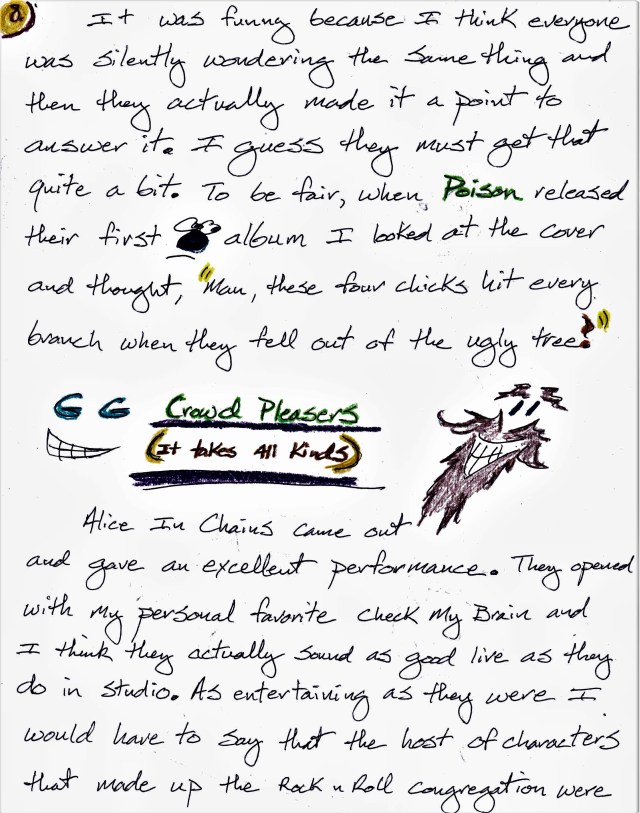 It was funny because I think everyone
was silently wondering the same thing and
then they actually made it a point to
answer it. I guess they must get that
quite a bit. To be fair, when Poison released
their first album I looked at the cover
and thought, "Man, these four chicks hit every
branch when they fell out of the ugly tree!"
Crowd Pleasers
(It takes All Kinds)
Alice In Chains came out
and gave an excellent performance. They opened
with my personal favorite Check My Brain and
I think they actually sound as good live as they
do in studio. As entertaining as they were I
would have to say that the host of characters
that made up the Rock n Roll congregation were